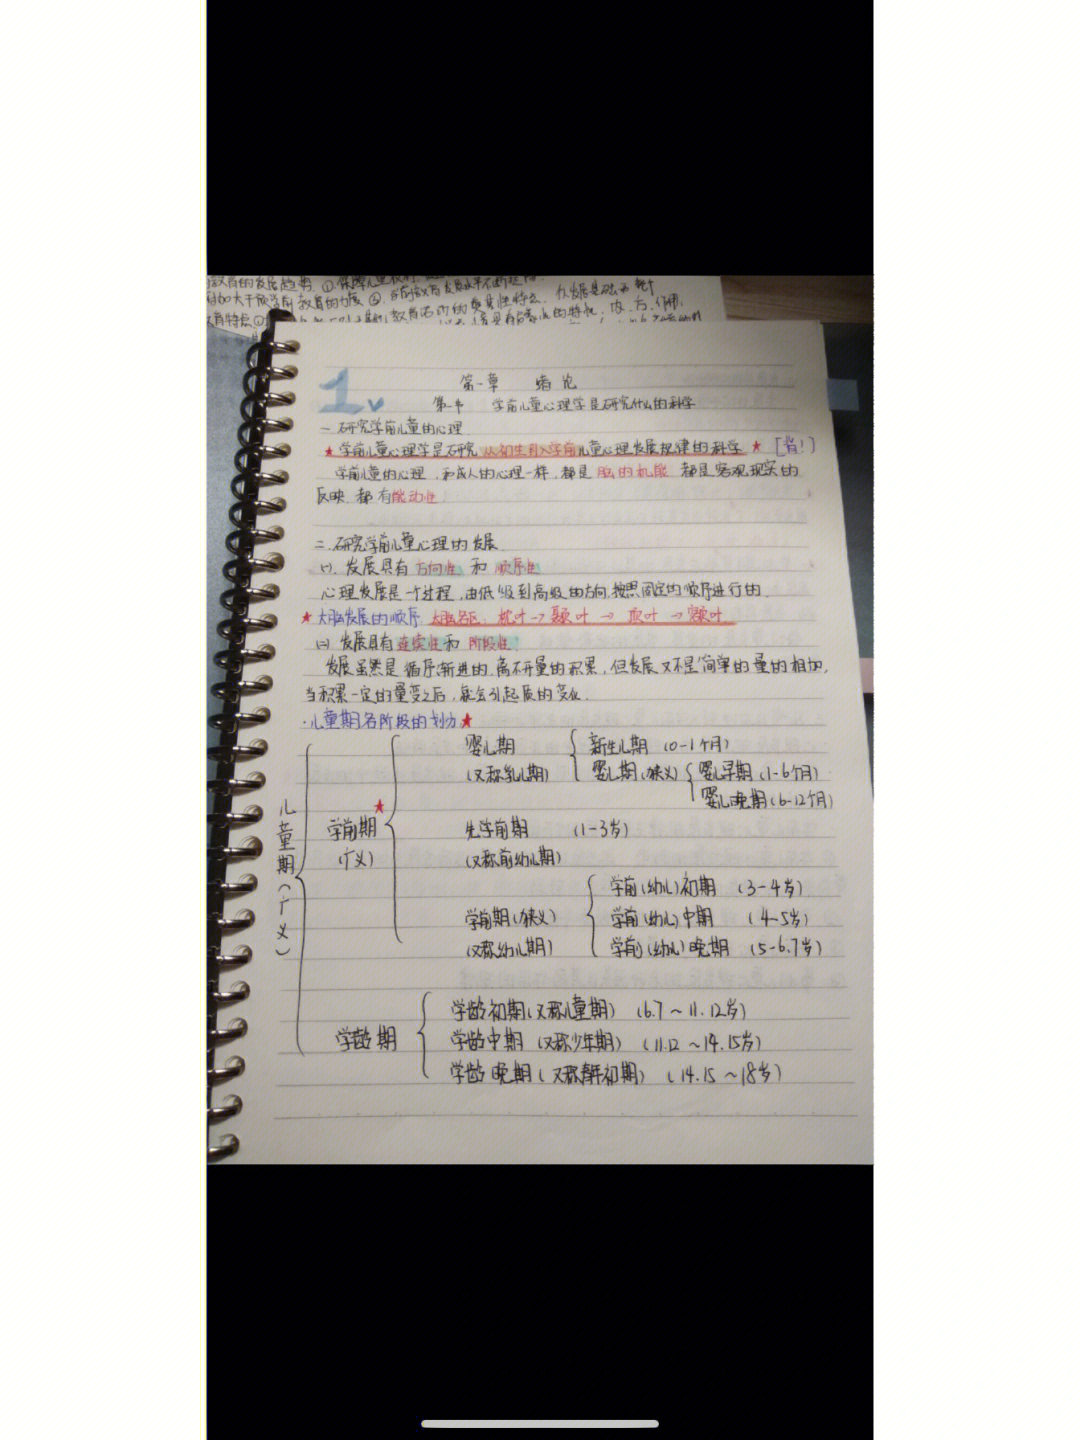 教育的发展趋势 ①保障儿童权利
加大干预学前教育的力度 ②
教育特点①
1
第一章 绪论
第一节 学前儿童心理学是研究什么的科学
一.研究学前儿童的心理
★学前儿童心理学是研究从初生到入学前儿童心理发展规律的科学★ [背!]
学前儿童的心理,和成人的心理一样,都是脑的机能 都是客观现实的
反映.都有能动性
二.研究学前儿童心理的发展
(一).发展具有方向性 和 顺序性
心理发展是一个过程,由低级到高级的方向,按照固定的顺序进行的.
★大脑发展的顺序:大脑各区:枕叶→颞叶→顶叶→额叶
(二)发展具有连续性和阶段性
发展虽然是循序渐进的,离不开量的积累,但发展又不是简单的量的相加,
当积累一定的量变之后,就会引起质的变化.
·儿童期各阶段的划分★
儿童期(广义)
★
学前期
(广义)
婴儿期
(又称乳儿期)
新生儿期 (0-1个月)
婴儿期(狭义)
婴儿早期(1-6个月)
婴儿晚期(6-12个月)
先学前期 (1-3岁)
(又称前幼儿期)
学前期(狭义)
(又称幼儿期)
学前(幼儿)初期 (3-4岁)
学前(幼儿)中期 (4-5岁)
学前(幼儿)晚期 (5-6.7岁)
学龄期
学龄初期(又称儿童期) (6.7~11.12岁)
学龄中期 (又称少年期) (11.12~14.15岁)
学龄晚期(又称青年初期) (14.15~18岁)